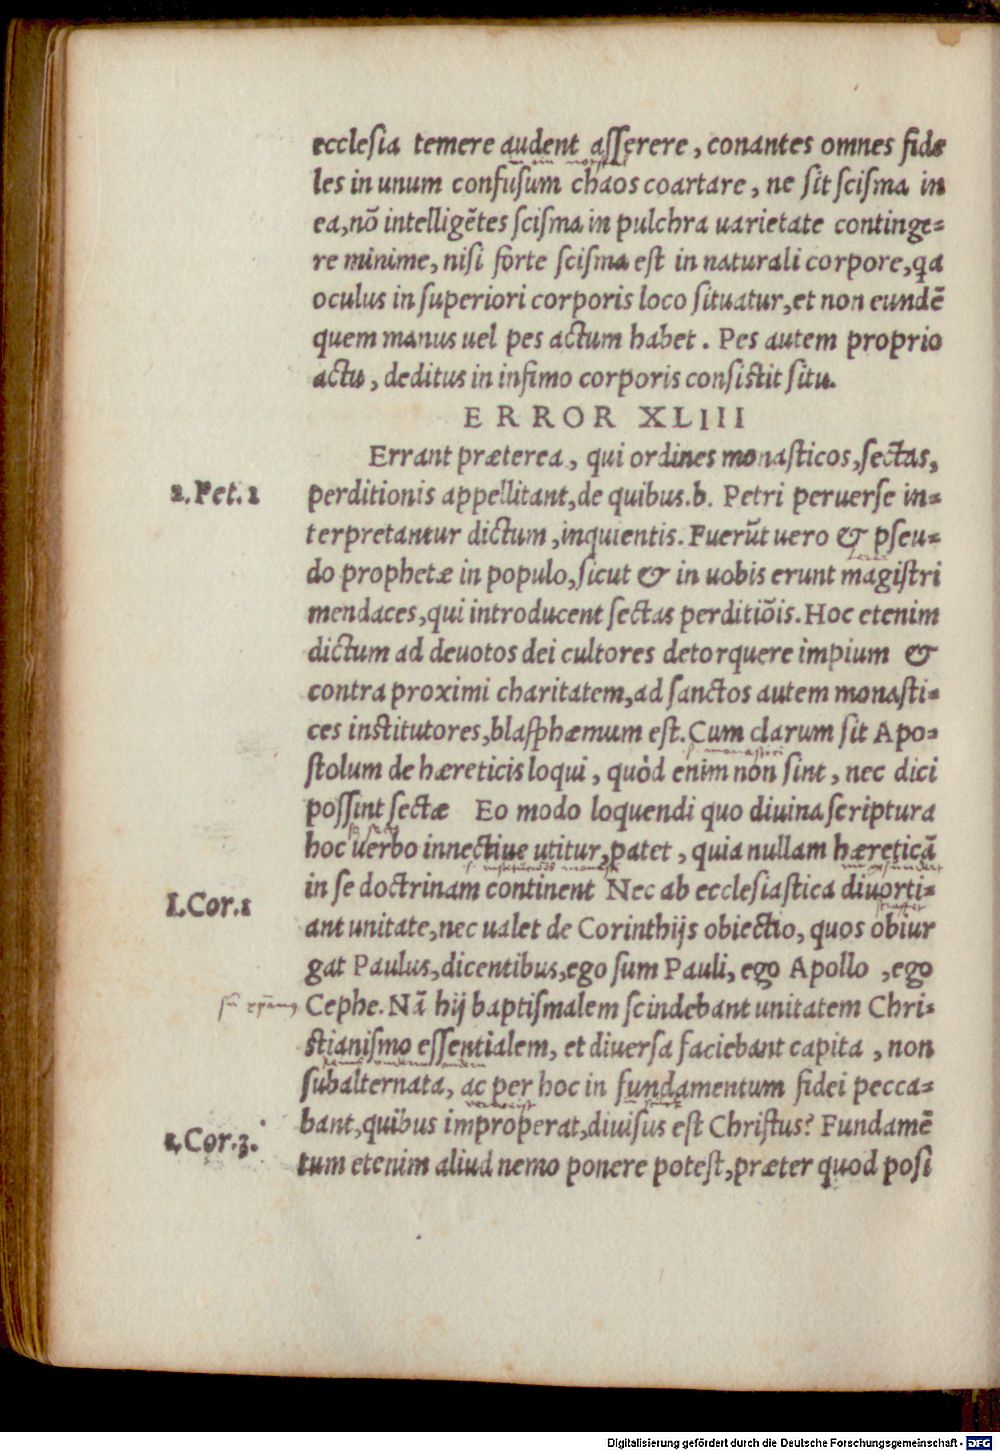 ecclesia temere audent asserere, conantes omnes fide
les in unum confusum chaos coartare, ne sit scisma in
ea, nō intelligētes scisma in pulchra uarietate continge=
re minime, nisi forte scisma est in naturali corpore, qa
oculus in superiori corporis loco situatur, et non eundē
quem manus uel pes actum habet. Pes autem proprio
actu, deditus in infimo corporis consistit situ.
ERROR XLIII
Errant præterea, qui ordines monasticos, sectas,
2. Pet. 2
perditionis appellitant, de quibus .b. Petri peruerse in=
terpretantur dictum, inquientis. Fuerūt uero & pseu=
do prophetæ in populo, sicut & in uobis erunt magistri
mendaces, qui introducent sectas perditiōis. Hoc etenim
dictum ad deuotos dei cultores detorquere impium &
contra proximi charitatem, ad sanctos autem monasti=
ces institutores, blasphæmum est. Cum clarum sit Apo=
stolum de hæreticis loqui, quòd enim non sint, nec dici
possint sectæ Eo modo loquendi quo diuina scriptura
hoc uerbo innectiue utitur, patet, quia nullam hæreticā
in se doctrinam continent Nec ab ecclesiastica diuorti=
I. Cor. 1
ant unitate, nec ualet de Corinthijs obiectio, quos obiur
gat Paulus, dicentibus, ego sum Pauli, ego Apollo, ego
Cephe. Nā hij baptismalem scindebant unitatem Chri=
stianismo essentialem, et diuersa faciebant capita, non
subalternata, ac per hoc in fundamentum fidei pecca=
bant, quibus improperat, diuisus est Christus? Fundamē
1. Cor. 3.
tum etenim aliud nemo ponere potest, præter quod posi
Digitalisierung gefördert durch die Deutsche Forschungsgemeinschaft - DFG